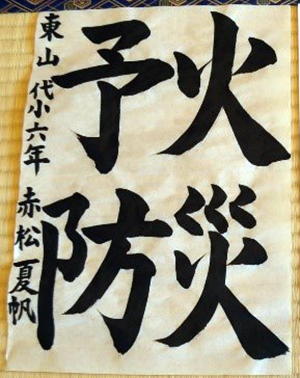 火災
予防
東山代小六年 赤松夏帆